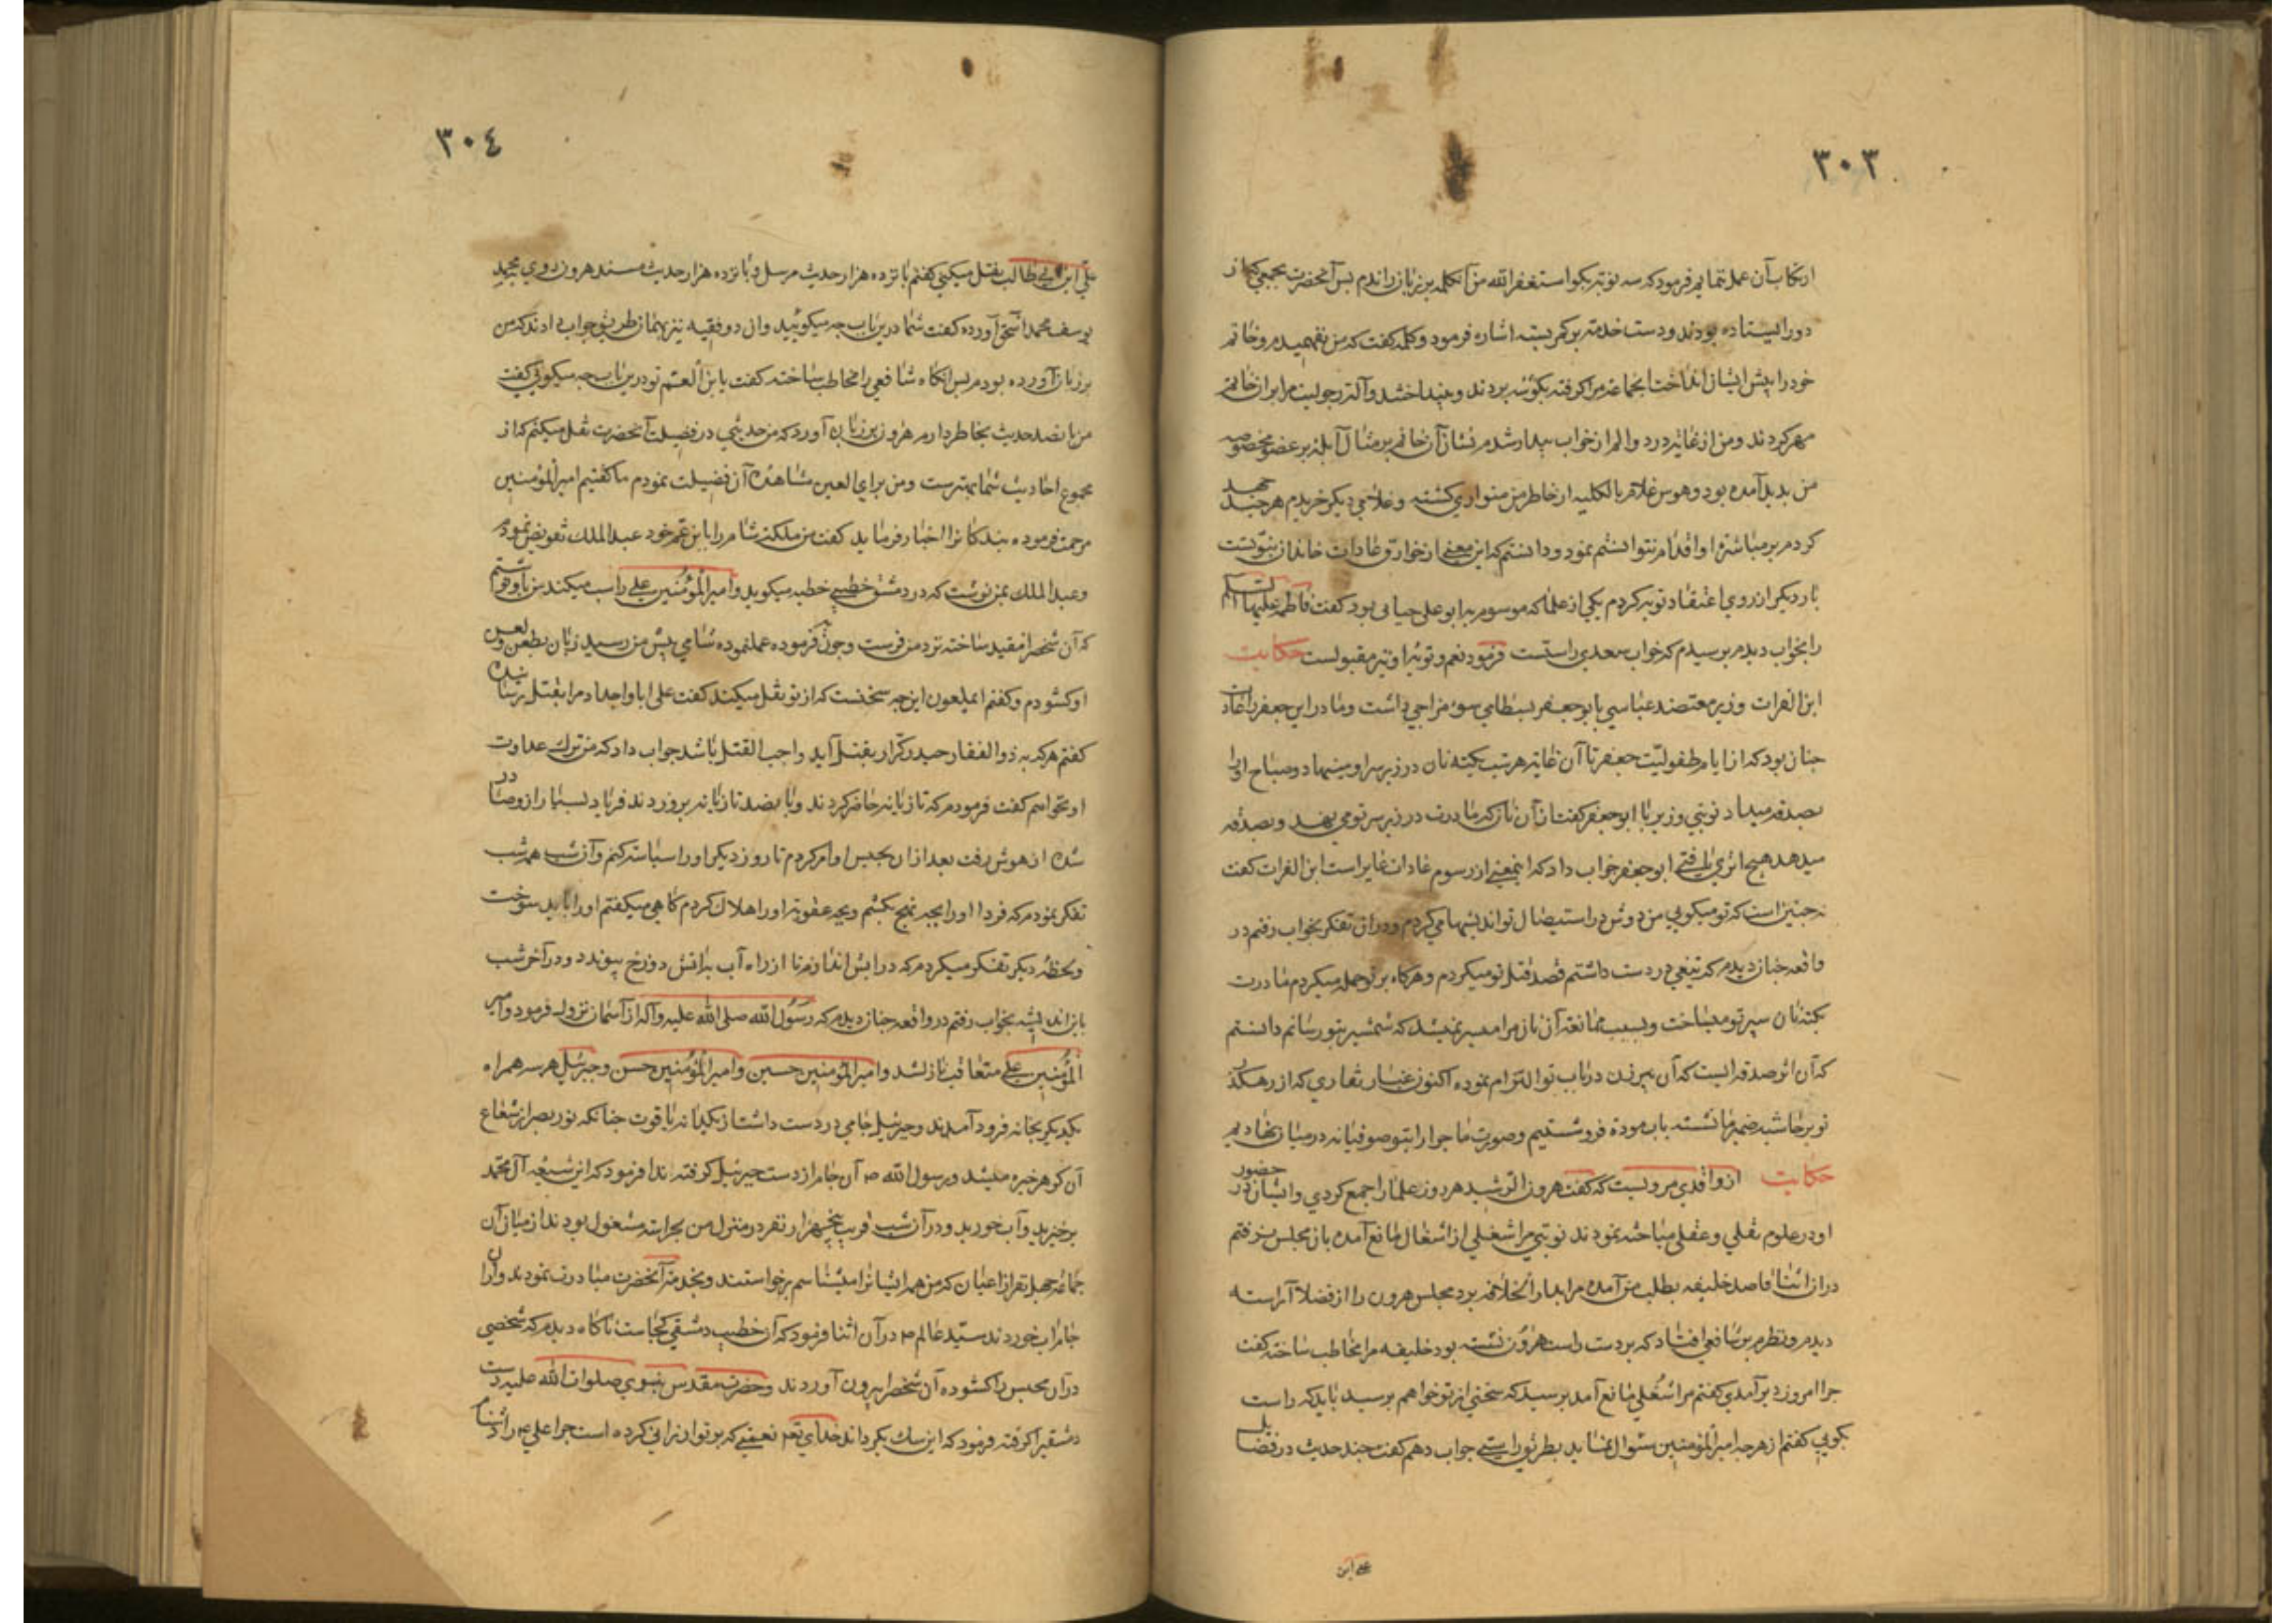 ٣٠٣
ارتكاب آن عمل نمايم فرمود كه سه نوبت بكو استغفر الله من آن كلمه بر زبان راندم بس آنحضرت بجمعي كه از
دور ايستاده بودند و دست خدمت بر كمر بسته اشاره فرمود و كلمه كفت كه من نفهميدم و خاتم
خود را پيش ايشان انداخت انجماعت مرا كرفته بكوشه بردند و آلت رجوليت مرا بران خاتم
مهر كردند و من از غايت درد و الم از خواب بيدار شدم نشان آن خاتم بر مثال آبله بر عضو مخصوص
من بديد آمده بود و هوس غلام بالكليه از خاطر من متواري كشته و غلامي ديكر خريدم هر چند جهد
كردم بر مباشرت او اقدام نتوانستم نمود و دانستم كه اين معني از خوارق عادات خاندان نبوتست
بار ديكر از روي اعتقاد توبه كردم يكي از علما كه موسوم به ابو علي بود كفت فاطمه عليها السلم
را بخواب ديدم برسيدم كه خواب سعدي راستست فرمود نعم و توبه او نيز مقبولست حكايت
ابن الفرات وزير معتضد عباسي با بو جعفر بسطامي سوء مزاجي داشت و مادر اين جعفر را عادت
جنان بود كه از ايام طفوليت جعفر تا آن غايت هر شب يكته نان در زير سر او مينهاد و صباح انرا
بصدقه ميداد نوبتي وزير با ابو جعفر كفت از آن نان كه مادرت در زير سر تو مي نهد و بصدقه
ميدهد هيچ اثري يافتي ابو جعفر جواب داد كه اينمعني از رسوم عادات است ابن الفرات كفت
نه جنين است كه تو ميكويي من دوش در استيصال تو انديشها مي كردم و دران تفكر بخواب رفتم در
واقعه جنان ديدم كه تيغي در دست داشتم قصد قتل تو ميكردم و هركاه بر تو حمله ميكردم مادرت
يكته نان سپر تو ميساخت و بسبب ممانعت آن نان مرا ميسر نميشد كه شمشير بتو رسانم دانستم
كه آن اثر صدقه ايست كه آن پير زن در باب تو التزام نموده اكنون غبار نقاري كه از رهكذر
تو بر حاشيه ضمير ما نشسته باب مودت فروشستيم و صورت ماجرا را بتو صوفيانه در ميان نهاديم
حكايت از واقدي مرويست كه كفت هرون الرشيد هر روز علما را جمع كردي و ايشان در حضور
او در علوم نقلي و عقلي مباحثه نمودند نوبتي مرا شغلي از اشغال مانع آمده بان مجلس نرفتم
در ان اثنا قاصد خليفه بطلب من آمده مرا بدار الخلافه برد مجلس هرون را از فضلا آراسته
ديدم و نظرم بر شافعي افتاد كه بر دست راست هرون نشسته بود خليفه مرا مخاطب ساخته كفت
جرا امروز دير آمدي كفتم مرا شغلي مانع آمد برسيد كه سخني از تو خواهم برسيد بايد كه راست
بكويي كفتم از هرچه امير المؤمنين سئوال نمايد بطريق راستي جواب دهم كفت جند حديث در فضايل
علي ابن
٣٠٤
علي ابن ابي طالب نقل ميكني كفتم بانزده هزار حديث مرسل و بانزده هزار حديث مسند هرون روي بمحمد
يوسف و محمد اسحق آورده كفت شما درين باب چه ميكوييد و ان دو فقيه نيز بهمان طريق جواب دادند كه من
بر زبان آورده بودم بس انكاه شافعي را مخاطب ساخته كفت يا بن العم تو درين باب چه ميكوئي كفت
من بانصد حديث بخاطر دارم هرون بر زبان آورد كه من حديثي در فضيلت آنحضرت نقل ميكنم كه از
مجموع احاديث شما بهترست و من براي العين مشاهده آن فضيلت نمودم ما كفتيم امير المؤمنين
مرحمت فرموده بندكانرا اخبار فرمايد كفت من ملكت شام را بابن عم خود عبد الملك تفويض نمودم
و عبد الملك بمن نوشت كه در دمشق خطيبي خطبه ميكويد و امير المؤمنين علي را سب ميكند من باو نوشتم
كه آن شخص را مقيد ساخته نزد من فرست و چون بفرموده عمل نموده شامي پيش من رسيد زبان بطعن و لعن
او كشودم و كفتم ايملعون اين چه سخنست كه از تو نقل ميكنند كفت علي ابا و اجداد مرا بقتل رسانيده
كفتم هر كه به ذو الفقار حيدر كرار بقتل آيد واجب القتل باشد جواب داد كه من ترك عداوت
او نخواهم كفت فرمودم كه تازيانه حاضر كردند و بانصد تازيانه برو زدند فرياد بسيار ازو صادر
شده از هوش رفت بعد از ان بحبس او امر كردم تا روز ديكر او را سياست كنم و آن شب همه شب
تفكر نمودم كه فردا او را بچه نهج بكشم و بچه عقوبت او را هلاك كردم كاهي ميكفتم او را بايد سوخت
و لحظه ديكر تفكر ميكردم كه در ابش اندازم تا از راه آب باتش دوزخ پيوندد و در آخر شب
باين انديشه بخواب رفتم در واقعه جنان ديدم كه رسول الله صلي الله عليه و آله از آسمان نزول فرمود و امير
المؤمنين علي متعاقب نازل شد و امير المؤمنين حسين و امير المؤمنين حسن و جبرئيل هر سه همراه
يكديكر بخانه فرود آمدند و جبرئيل جامي در دست داشت از يكدانه ياقوت جنانكه نور بصر از شعاع
آن كوهر خيره ميشد و رسول الله ص آن جام از دست جبرئيل كرفته ندا فرمود كه اين شيعه آل محمد
برخيزيد و آب خوريد و در آن شب قريب پنجهزار نفر در منزل من بحراست مشغول بودند از ميان آن
جماعه چهل نفر از اعيان كه من همه ايشانرا ميشناسم برخواستند و بخدمت آنحضرت مبادرت نمودند و ازان
جام اب خوردند سيد عالم ص در آن اثنا فرمود كه آن خطيب دمشقي كجاست ناكاه ديدم كه شخصي
در آن محبس را كشوده آن شخص را بيرون آوردند و حضرت مقدس نبوي صلوات الله عليه دست
دمشقي را كرفته فرمود كه اين سك بكرداند خداي تع نعمتي كه بر تو ارزاني كرده است جرا علي ع را دشنام